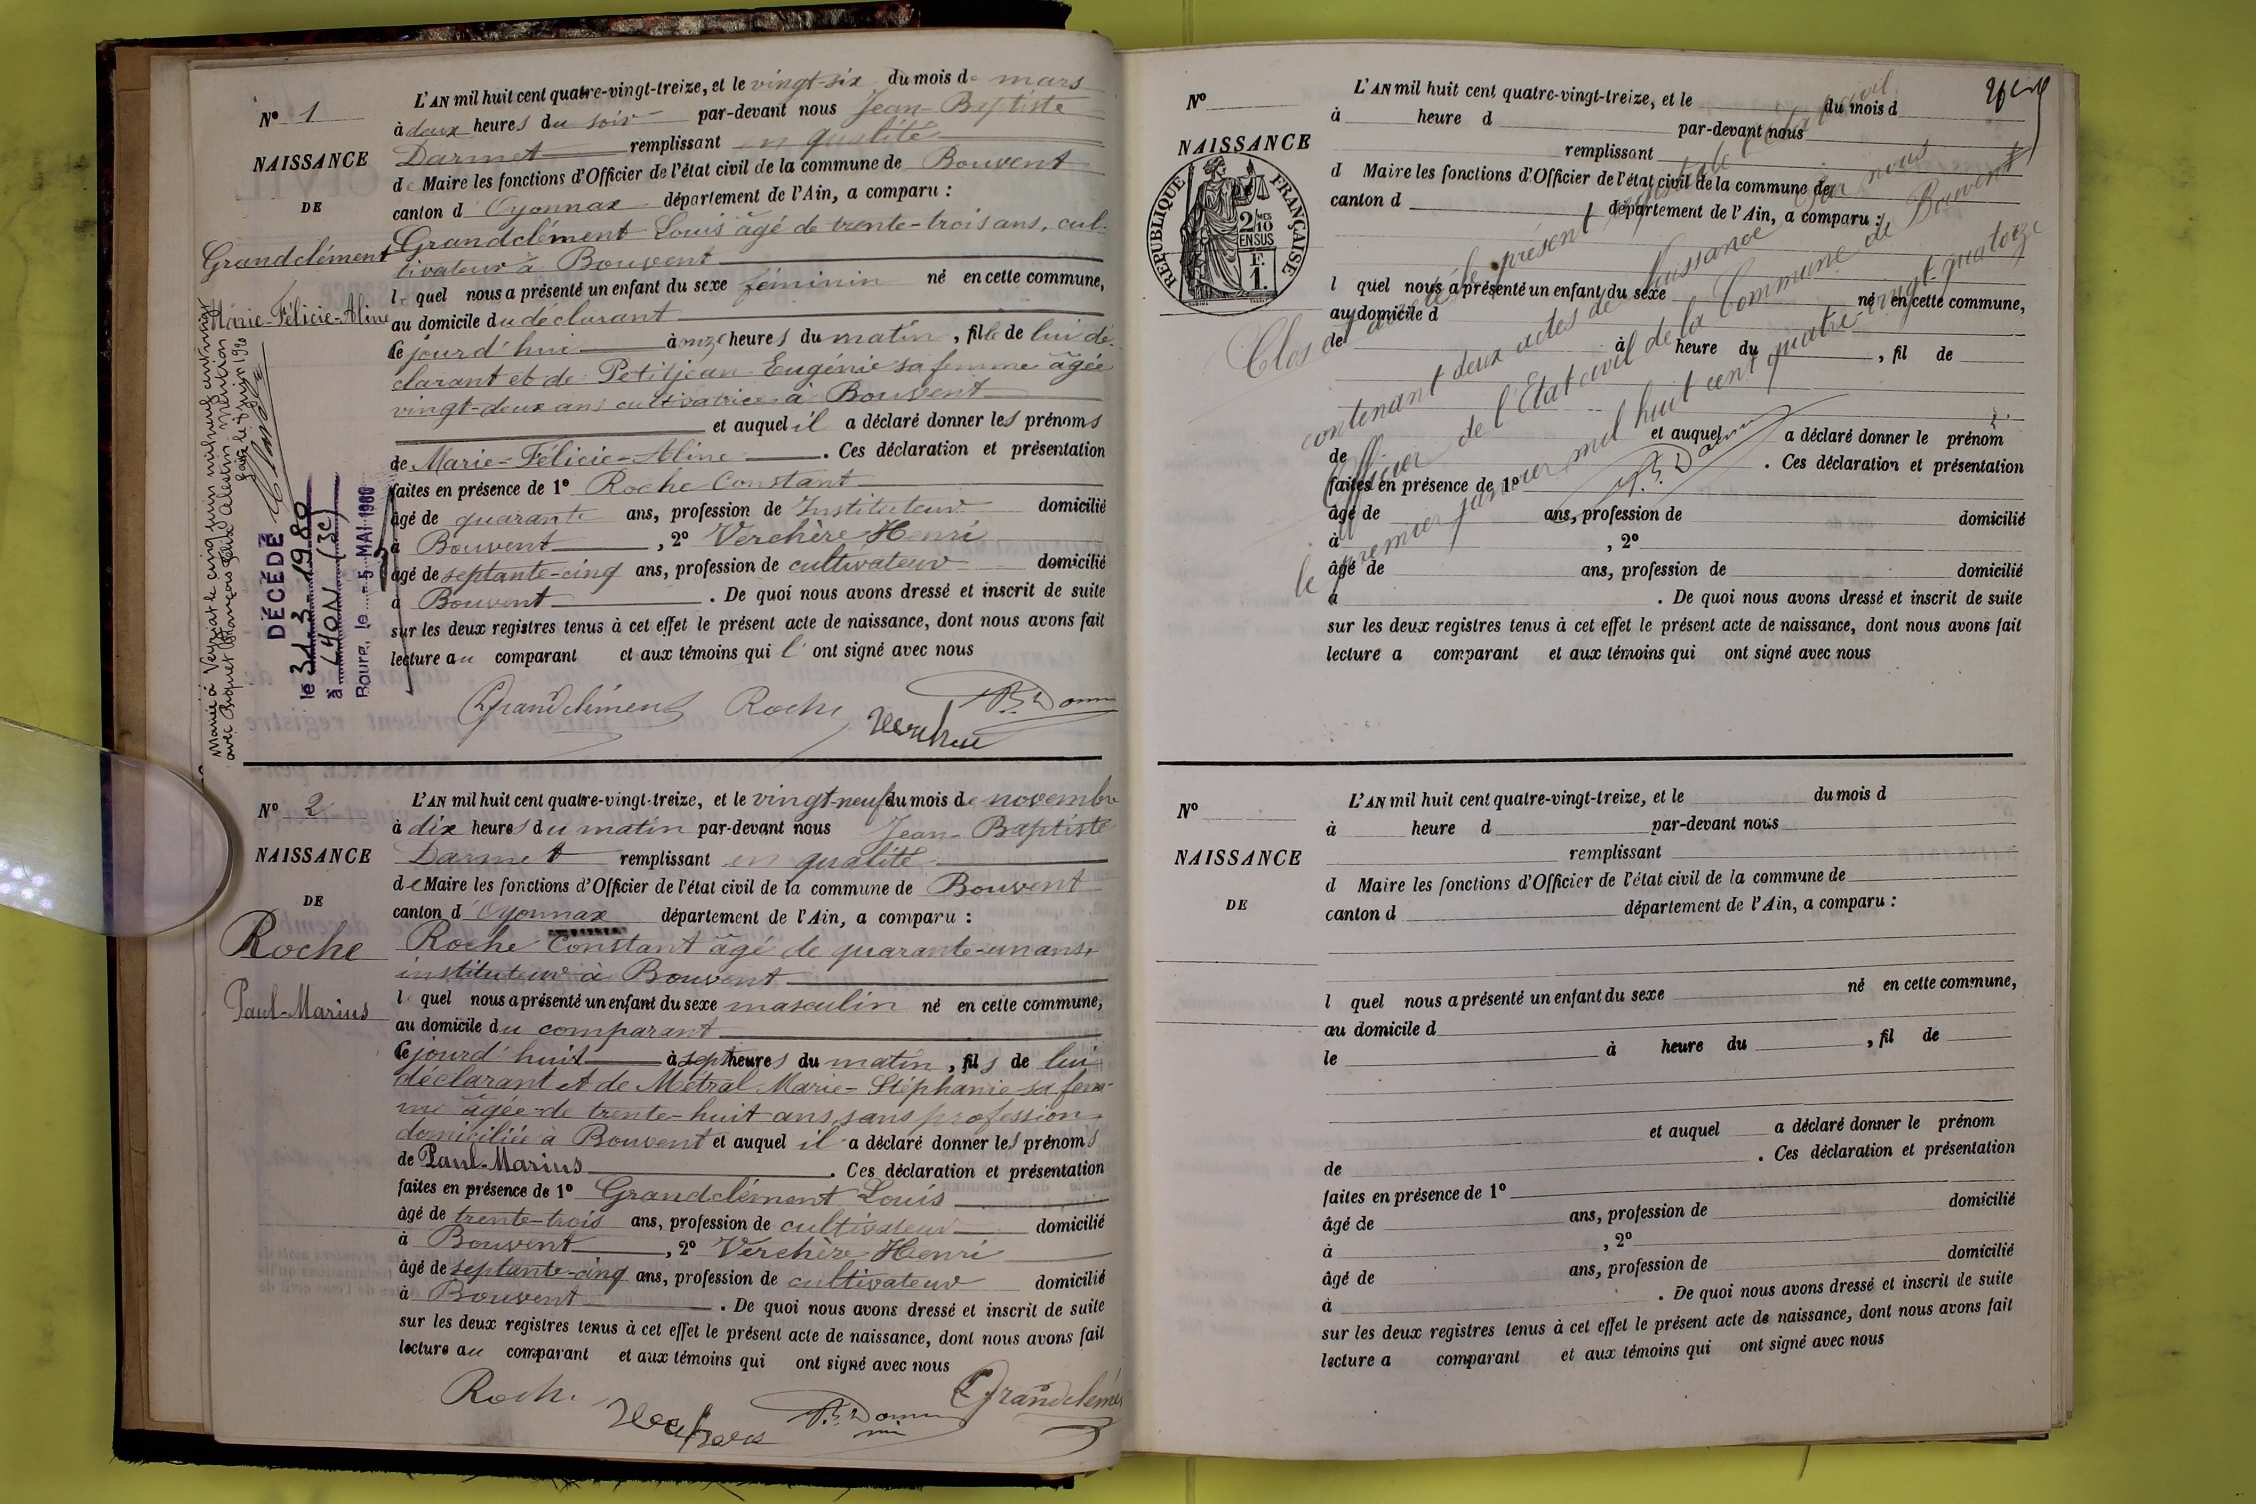 N° 1
NAISSANCE
DE
Grandclément
Marie-Félicie-Aline
L'AN mil huit cent quatre-vingt-treize, et le vingt-six du mois de mars
à deux heures du soir par-devant nous Jean-Baptiste
Darmet remplissant en qualité
de Maire les fonctions d'Officier de l'état civil de la commune de Bouvent
canton d'Oyonnax département de l'Ain, a comparu :
Grandclément Louis âgé de trente-trois ans, cul-
tivateur à Bouvent
lequel nous a présenté un enfant du sexe féminin né en cette commune,
au domicile du déclarant
Cejourd'hui à onze heures du matin, fille de lui dé-
clarant et de Petitjean Eugénie sa femme âgée
vingt-deux ans cultivatrice à Bouvent
et auquel il a déclaré donner les prénoms
de Marie-Félicie-Aline. Ces déclaration et présentation
faites en présence de 1° Roche Constant
âgé de quarante ans, profession de Instituteur domicilié
à Bouvent, 2° Verchère Henri
âgé de septante-cinq ans, profession de cultivateur domicilié
à Bouvent. De quoi nous avons dressé et inscrit de suite
sur les deux registres tenus à cet effet le présent acte de naissance, dont nous avons fait
lecture au comparant et aux témoins qui l'ont signé avec nous
Grandclément Roche
Mariée à Veyriat le cinq juin mil neuf cent vingt
avec
DÉCÉDÉ
le 31.3.1980
à LYON (3e)
Bourg, le 5 MAI 1980
N° 2
NAISSANCE
DE
Roche
Paul-Marius
L'AN mil huit cent quatre-vingt-treize, et le vingt-neuf du mois de novembre
à dix heures du matin par-devant nous Jean-Baptiste
Darmet remplissant en qualité
de Maire les fonctions d'Officier de l'état civil de la commune de Bouvent
canton d'Oyonnax département de l'Ain, a comparu :
Roche Constant âgé de quarante-un ans,
instituteur à Bouvent
lequel nous a présenté un enfant du sexe masculin né en cette commune,
au domicile du comparant
Cejourd'huit à sept heures du matin, fils de lui
déclarant et de Métral Marie-Stéphanie sa fem-
me âgée de trente-huit ans, sans profession
domiciliée à Bouvent et auquel il a déclaré donner les prénoms
de Paul-Marius. Ces déclaration et présentation
faites en présence de 1° Grandclément Louis
âgé de trente-trois ans, profession de cultivateur domicilié
à Bouvent, 2° Verchère Henri
âgé de septante-cinq ans, profession de cultivateur domicilié
à Bouvent. De quoi nous avons dressé et inscrit de suite
sur les deux registres tenus à cet effet le présent acte de naissance, dont nous avons fait
lecture au comparant et aux témoins qui ont signé avec nous
Roche
Grandclément
N°
NAISSANCE
RÉPUBLIQUE FRANÇAISE
2/10MES
EN SUS
F.
1.
DE
L'AN mil huit cent quatre-vingt-treize, et le du mois d
à heure d par-devant nous
remplissant
d Maire les fonctions d'Officier de l'état civil de la commune de
canton d département de l'Ain, a comparu :
l quel nous a présenté un enfant du sexe né en cette commune,
au domicile d
le à heure du , fil de
et auquel a déclaré donner le prénom
de . Ces déclaration et présentation
faites en présence de 1°
âgé de ans, profession de domicilié
à , 2°
âgé de ans, profession de domicilié
à . De quoi nous avons dressé et inscrit de suite
sur les deux registres tenus à cet effet le présent acte de naissance, dont nous avons fait
lecture a comparant et aux témoins qui ont signé avec nous
Clos et arrêté le présent registre de l'état civil
contenant deux actes de naissance par nous
Officier de l'Etat civil de la Commune de Bouvent
le premier janvier mil huit cent quatre-vingt-quatorze
N°
NAISSANCE
DE
L'AN mil huit cent quatre-vingt-treize, et le du mois d
à heure d par-devant nous
remplissant
d Maire les fonctions d'Officier de l'état civil de la commune de
canton d département de l'Ain, a comparu :
l quel nous a présenté un enfant du sexe né en cette commune,
au domicile d
le à heure du , fil de
et auquel a déclaré donner le prénom
de . Ces déclaration et présentation
faites en présence de 1°
âgé de ans, profession de domicilié
à , 2°
âgé de ans, profession de domicilié
à . De quoi nous avons dressé et inscrit de suite
sur les deux registres tenus à cet effet le présent acte de naissance, dont nous avons fait
lecture a comparant et aux témoins qui ont signé avec nous